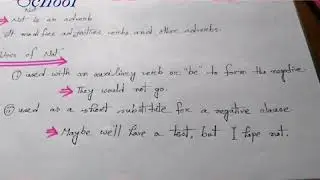 School
Not
Not is an adverb
It modifies adjectives verbs and other adverbs.
Uses of Not
① used with an auxiliary verb or "be" to form the negative
→ They would not go.
② used as a short substitute for a negative clause
→ Maybe we'll have a test, but I hope not.